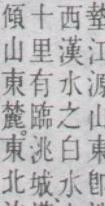 墊江源山東卽
西漢水之白水
十里有臨洮城
傾山東麓。東北